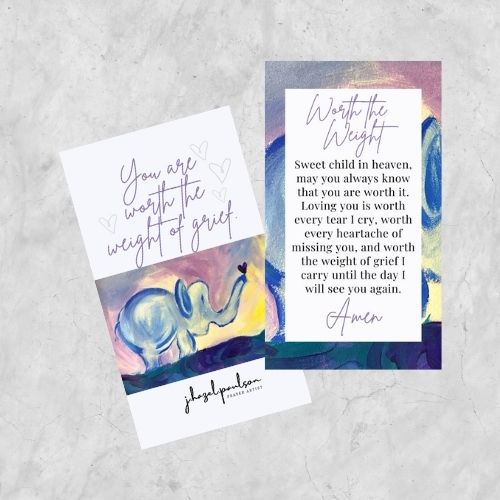 You are
worth the
weight of grief.
j.hazel.paulson
PRAYER ARTIST
Worth the
Weight
Sweet child in heaven,
may you always know
that you are worth it.
Loving you is worth
every tear I cry, worth
every heartache of
missing you, and worth
the weight of grief I
carry until the day I
will see you again.
Amen